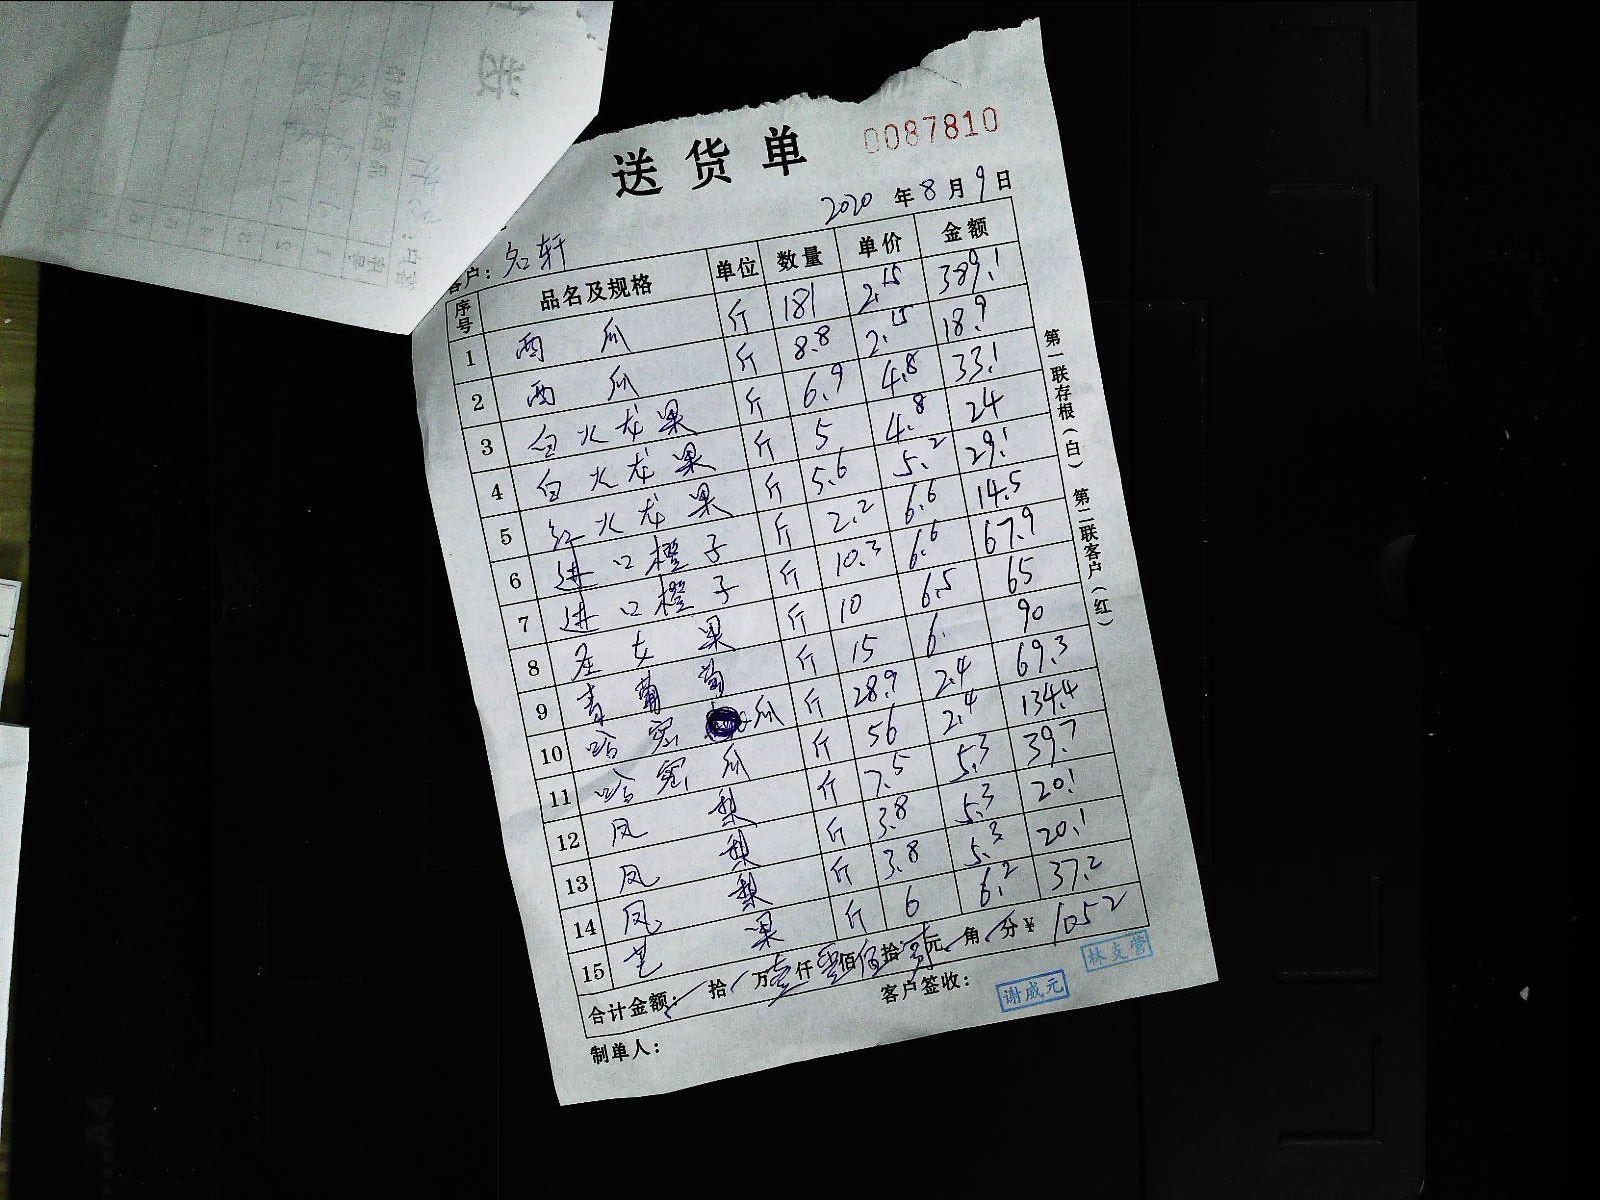 送货单 0087810
2020年8月9日
客户：名轩
序号 品名及规格 单位 数量 单价 金额
1 西瓜 斤 181 2.15 389.1
2 西瓜 斤 8.8 2.15 18.9
3 白火龙果 斤 6.9 4.8 33.1
4 白火龙果 斤 5 4.8 24
5 红火龙果 斤 5.6 5.2 29.1
6 进口橙子 斤 2.2 6.6 14.5
7 进口橙子 斤 10.3 6.6 67.9
8 圣女果 斤 10 6.5 65
9 青葡萄 斤 15 6. 90
10 哈密瓜 斤 28.9 2.4 69.3
11 哈密瓜 斤 56 2.4 134.4
12 凤梨 斤 7.5 5.3 39.7
13 凤梨 斤 3.8 5.3 20.1
14 凤梨 斤 3.8 5.3 20.1
15 芒果 斤 6 6.2 37.2
合计金额： 拾 万壹仟零佰伍拾贰元 角 分￥ 1052
制单人： 客户签收： 谢成元 林支营
第一联存根（白） 第二联客户（红）